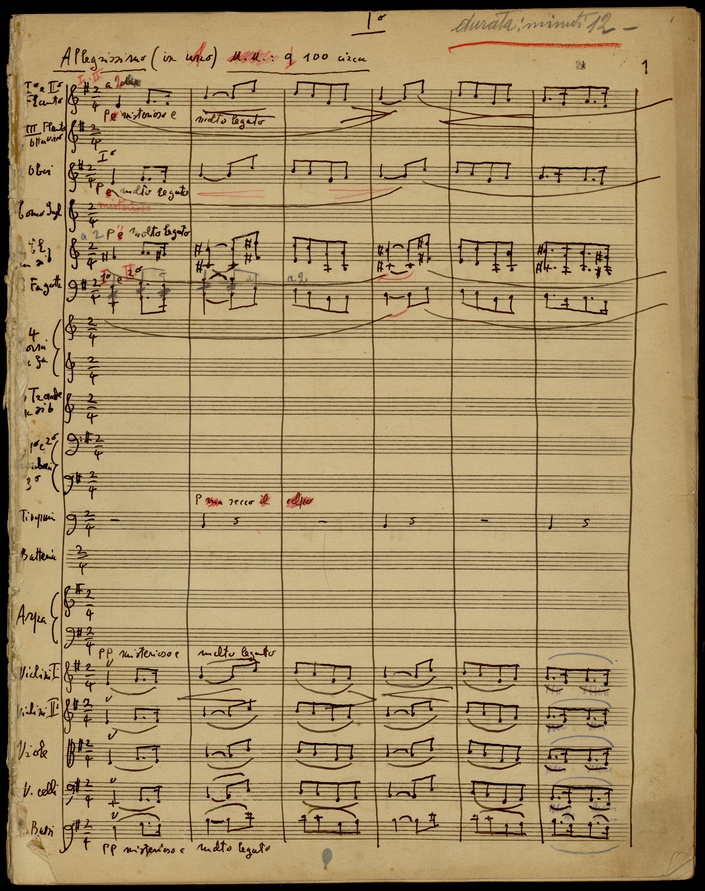 Iº
durata: minuti 12 -
Allegrissimo (in uno) M.M.: 100 circa
1
Iº e IIº
Flauto
pp misterioso e molto legato
III Flauto
Ottavino
Iº
Oboi
pp e molto legato
misterioso
Corno Ingl
a 2 pp e molto legato
Cl.
in sib
Iº e IIº
a 2
Fagotti
4
Corni
in Fa
Trombe
in sib
1º e 2º
3º
P secco il colpo
Timpani
Batteria
Arpa
pp misterioso e molto legato
Violini I
Violini II
Viole
V. celli
Bassi
pp misterioso e molto legato